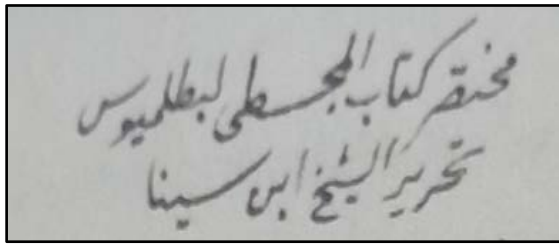 مختصر كتاب المجسطي لبطلميوس
تحرير الشيخ ابن سينا